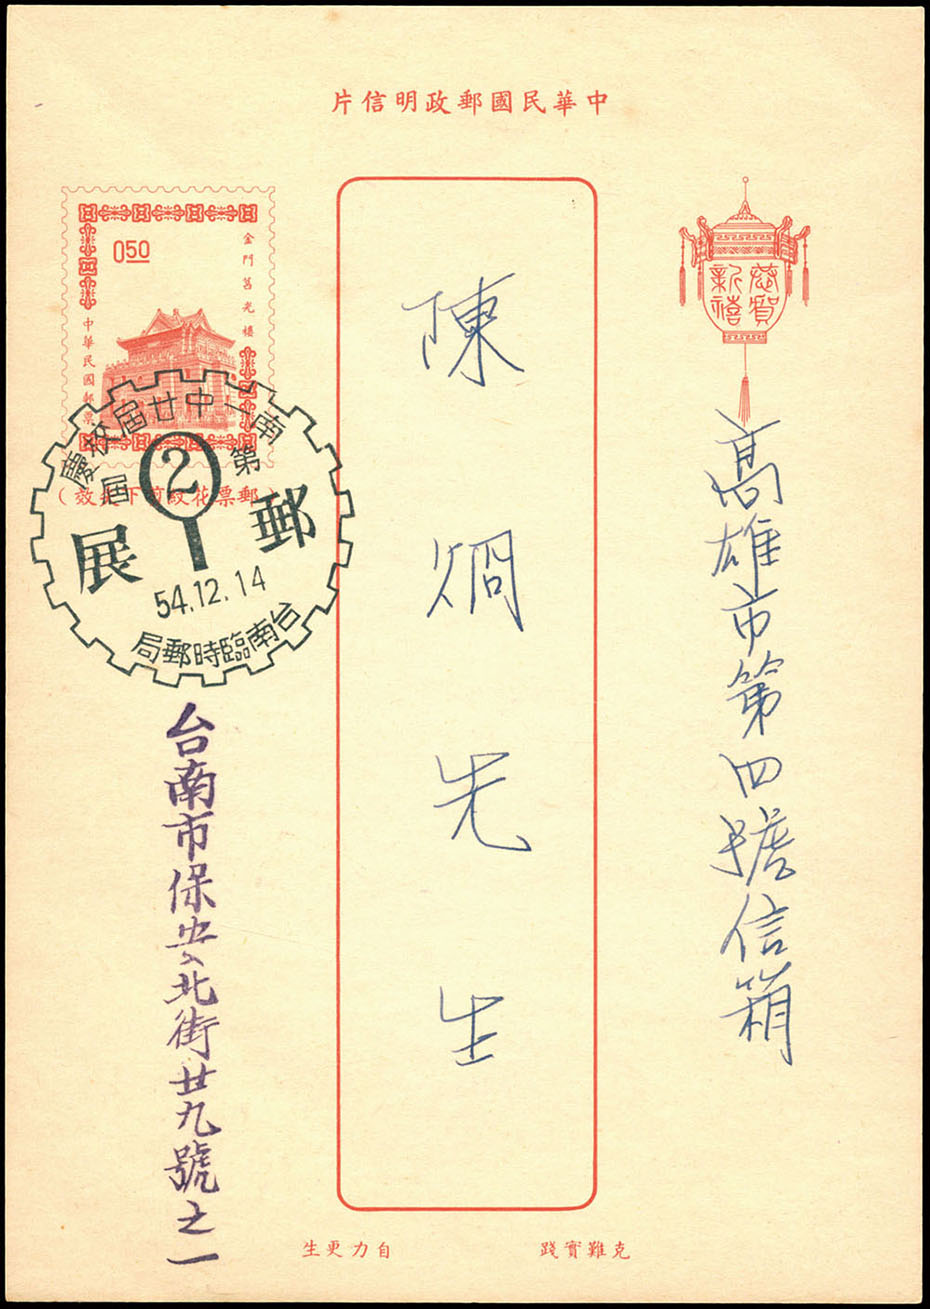 中華民國郵政明信片
恭賀
新禧
高雄市第四號信箱
陳炯先生
0.50
金門莒光樓
中華民國郵票
(郵票花紋剪下無效)
南一中廿屆校慶
第2屆
郵展
54.12.14
台南臨時郵局
台南市保安北街廿九號之一
克難實踐
自力更生